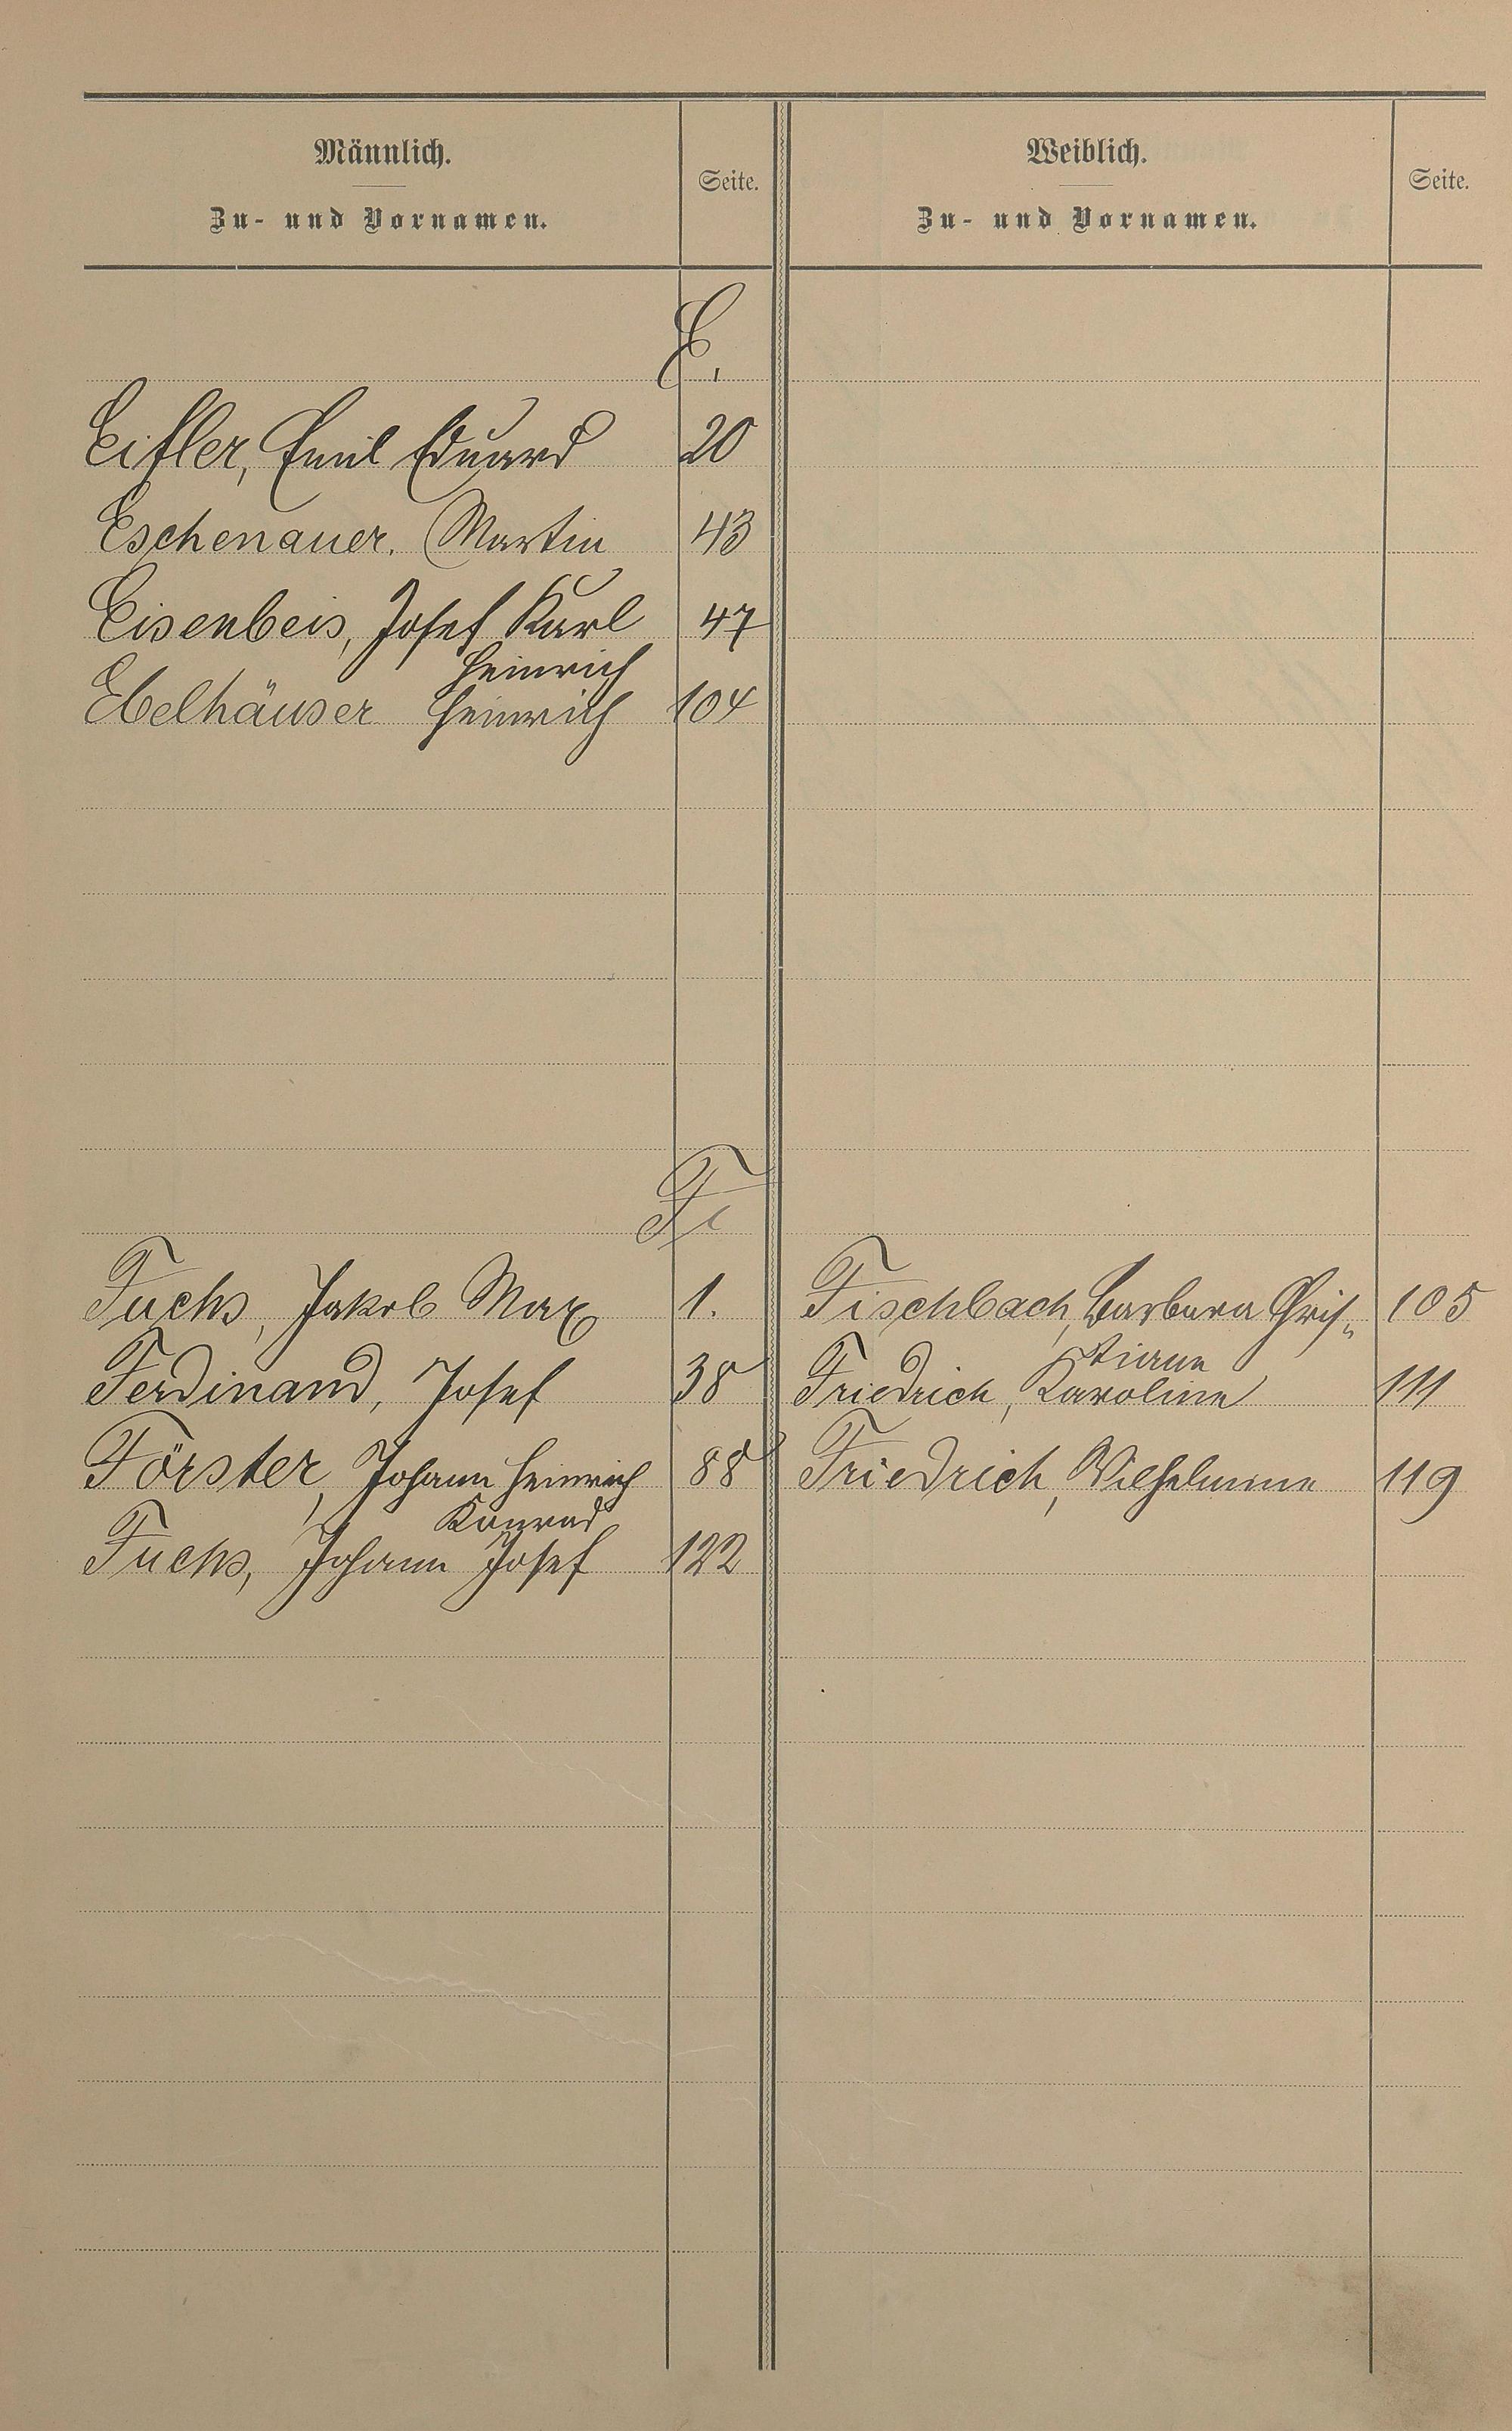 Männlich.
Zu- und Vornamen.
Seite.
Weiblich.
Zu- und Vornamen.
Seite.
E.
Eifler, Emil Eduard 20
Eschenauer. Martin 43
Eisenbeis, Josef Karl 47
Heinrich
Ebelhäuser Heinrich 104
F.
Fuchs, Jakob Max 1. Fischbach, Barbara Chris„ 105
Ferdinand, Josef 38
tiane
Friedrich, Karoline 111
Förster, Johann Heinrich 88 Friedrich, Wilhelmine 119
Konrad
Fuchs, Johann Josef 122